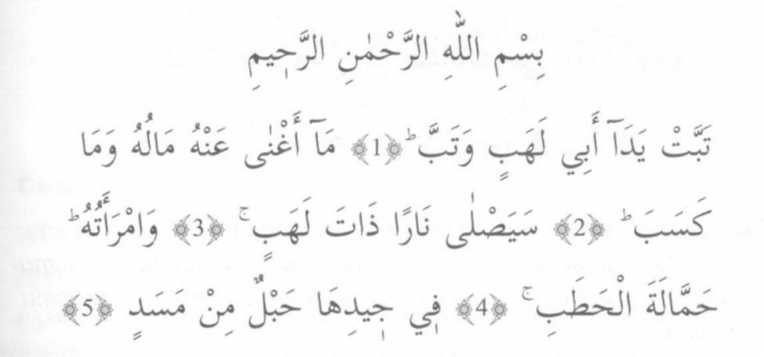 بِسْمِ اللّٰهِ الرَّحْمٰنِ الرَّحٖيمِ
تَبَّتْ يَدَآ أَبِي لَهَبٍ وَتَبَّ ؕ ﴿1﴾ مَآ أَغْنٰى عَنْهُ مَالُهُ وَمَا
كَسَبَ ؕ ﴿2﴾ سَيَصْلٰى نَارًا ذَاتَ لَهَبٍ ۚ ﴿3﴾ وَامْرَأَتُهُ ؕ
حَمَّالَةَ الْحَطَبِ ۚ ﴿4﴾ فٖي جٖيدِهَا حَبْلٌ مِنْ مَسَدٍ ﴿5﴾